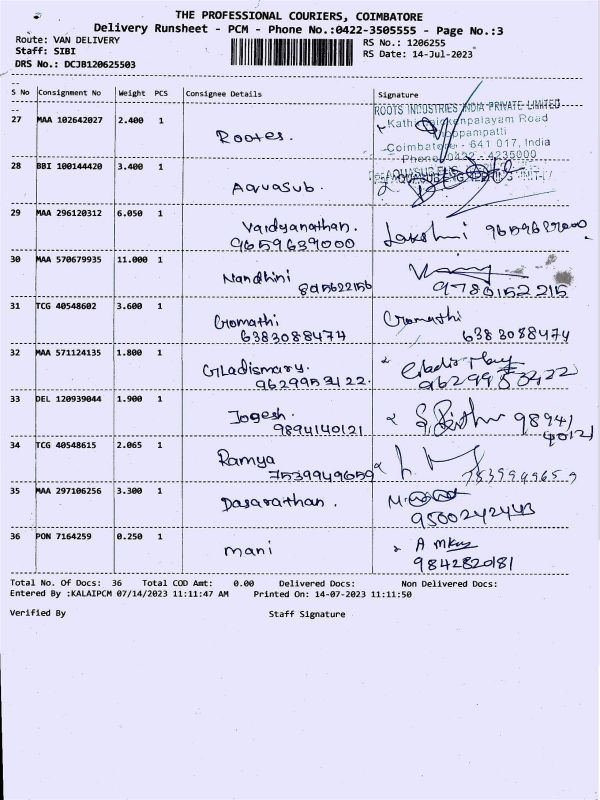 THE PROFESSIONAL COURIERS, COIMBATORE
Delivery Runsheet - PCM - Phone No.:0422-3505555 - Page No.:3
Route: VAN DELIVERY RS No.: 1206255
Staff: SIBI RS Date: 14-Jul-2023
DRS No.: DCJB120625503
S No Consignment No Weight PCS Consignee Details Signature
ROOTS INDUSTRIES INDIA PRIVATE LIMITED
27 MAA 102642027 2.400 1 Kathi Palayam Road
Rootes.
Coimbatore - 641 017, India
Phone 0422 - 4235000
28 BBI 100144420 3.400 1
Aquasub.
29 MAA 296120312 6.050 1
Vaidyanathan. Lakshmi
9659639000
30 MAA 570679935 11.000 1
Nandhini
9780152215
31 TCG 40548602 3.600 1
Gomathi Gomathi
6383088474 6383088474
32 MAA 571124135 1.800 1
Gladismary.
33 DEL 120939044 1.900 1
Jogesh. 98941
9894140121 40121
34 TCG 40548615 2.065 1
Ramya
7539949659
35 MAA 297106256 3.300 1
Dasarathan.
9500242443
36 PON 7164259 0.250 1
mani A
9842820181
Total No. Of Docs: 36 Total COD Amt: 0.00 Delivered Docs: Non Delivered Docs:
Entered By :KALAIPCM 07/14/2023 11:11:47 AM Printed On: 14-07-2023 11:11:50
Verified By Staff Signature